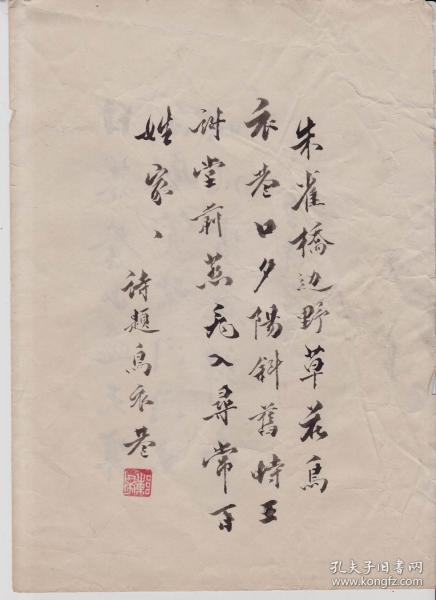 朱雀橋边野草花烏
衣巷口夕陽斜舊時王
謝堂前燕飛入尋常百
姓家、
詩題烏衣巷
孔夫子旧书网
www.kongfz.com